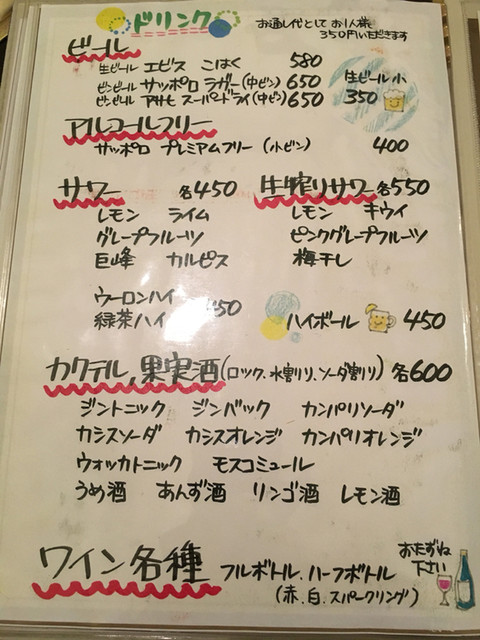 ドリンク
お通し代として お1人様
350円いただきます
ビール
生ビール エビス こはく 580
ビンビール サッポロ ラガー(中ビン) 650
ビンビール アサヒ スーパードライ(中ビン) 650
生ビール 小
350
アルコールフリー
サッポロ プレミアムフリー (小ビン) 400
サワー 各450
レモン ライム
グレープフルーツ
巨峰 カルピス
生搾りサワー 各550
レモン キウイ
ピンクグレープフルーツ
梅干し
ウーロンハイ
緑茶ハイ 450
ハイボール 450
カクテル、果実酒(ロック、水割り、ソーダ割り) 各600
ジントニック ジンバック カンパリソーダ
カシスソーダ カシスオレンジ カンパリオレンジ
ウォッカトニック モスコミュール
うめ酒 あんず酒 リンゴ酒 レモン酒
ワイン各種 フルボトル、ハーフボトル
(赤、白、スパークリング)
おたずね
下さい